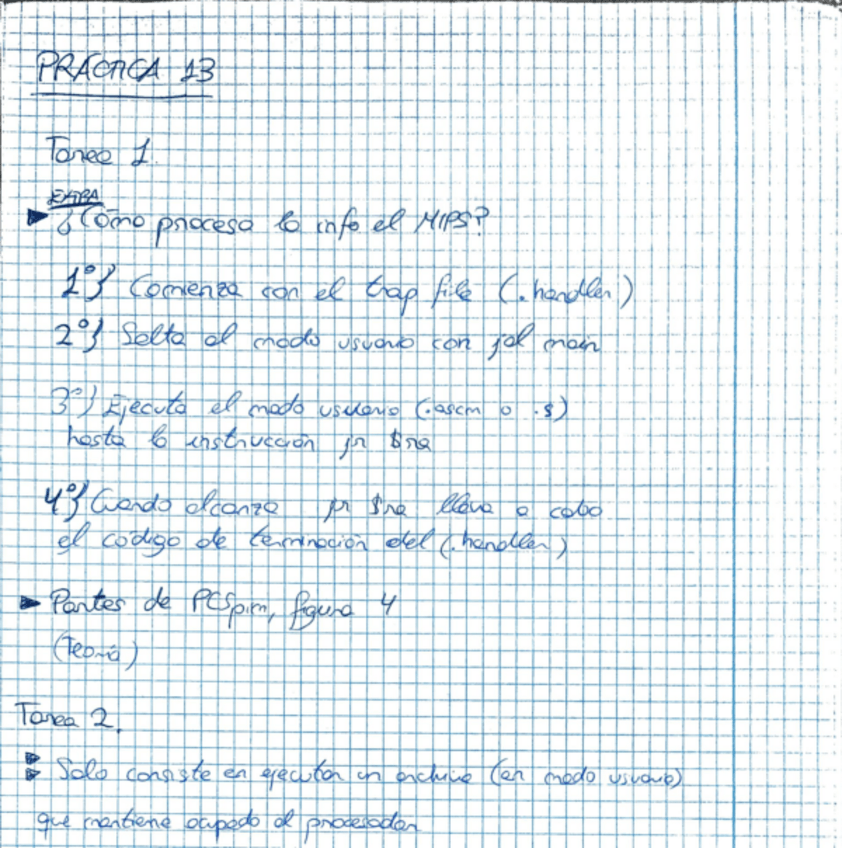 PRÁCTICA 13
Tarea 1.
EXTRA
¿Cómo procesa la info el MIPS?
1º) Comienza con el trap file (.handler)
2º) Salta al modo usuario con jal main
3º) Ejecuta el modo usuario (.ascm o .s)
hasta la instrucción jr $ra
4º) Cuando alcanza jr $ra lleva a cabo
el código de terminación del (.handler)
Partes de PCSpim, figura 4
(Teoría)
Tarea 2.
Solo consiste en ejecutar un archivo (en modo usuario)
que mantiene ocupado al procesador